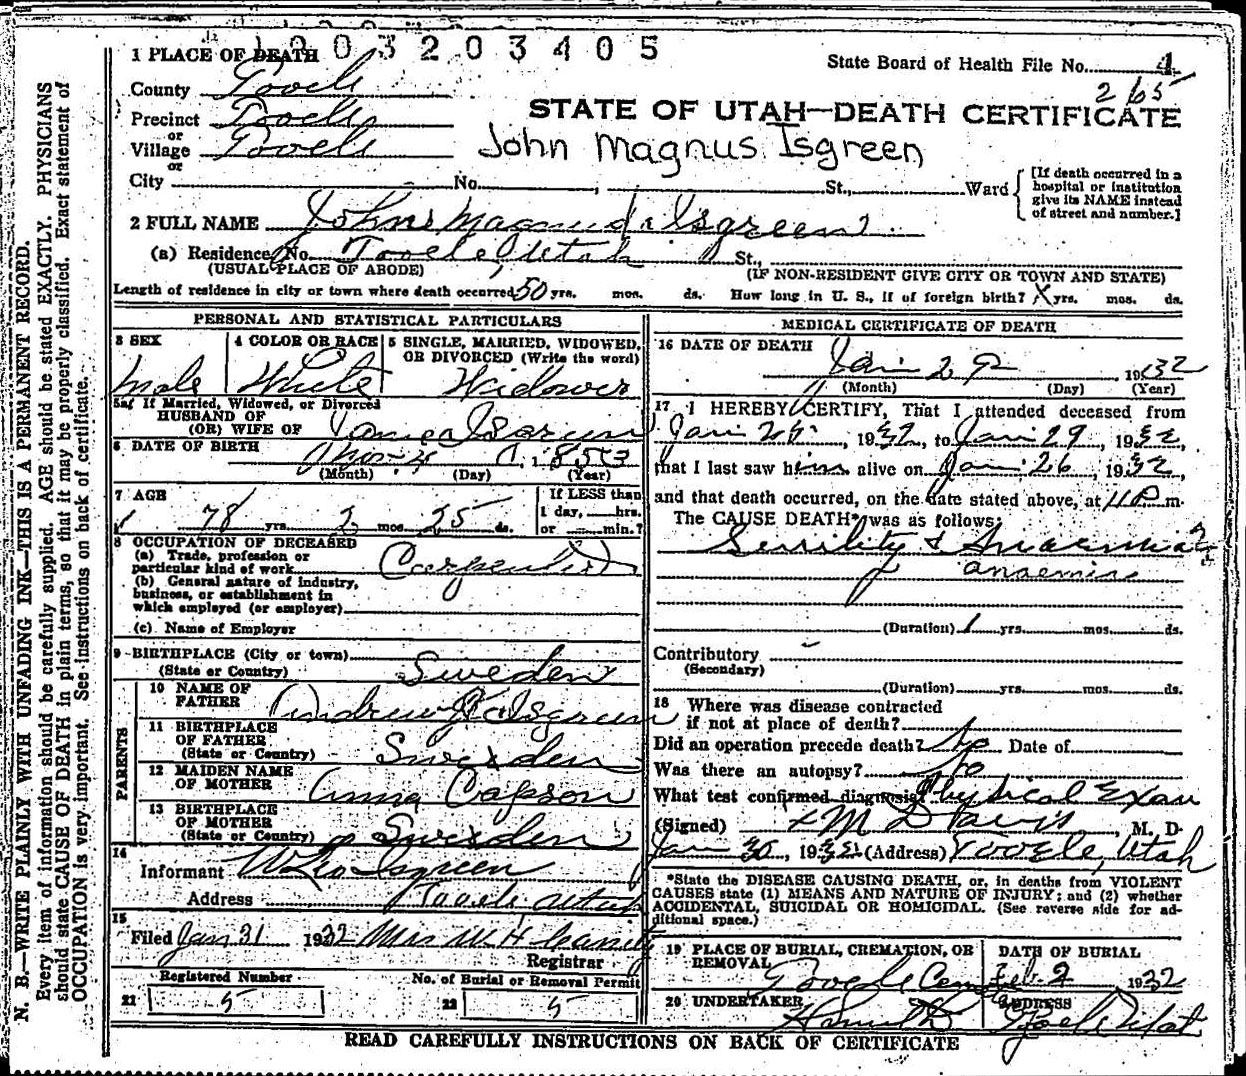 1203203405
1 PLACE OF DEATH
State Board of Health File No. 4
265
County Tooele
Precinct Tooele
or
Village Tooele
or
STATE OF UTAH—DEATH CERTIFICATE
John Magnus Isgreen
City No. , St., Ward
[If death occurred in a
hospital or institution
give its NAME instead
of street and number.]
2 FULL NAME Johns Magnus Isgreen
(a) Residence No. Tooele, Utah St.,
(USUAL PLACE OF ABODE) (IF NON-RESIDENT GIVE CITY OR TOWN AND STATE)
Length of residence in city or town where death occurred 50 yrs. mos. ds. How long in U. S., if of foreign birth? X yrs. mos. ds.
PERSONAL AND STATISTICAL PARTICULARS
3 SEX 4 COLOR OR RACE 5 SINGLE, MARRIED, WIDOWED,
OR DIVORCED (Write the word)
Male White Widower
5a If Married, Widowed, or Divorced
HUSBAND OF
(OR) WIFE OF Isgreen
6 DATE OF BIRTH Nov 4 1853
(Month) (Day) (Year)
7 AGE If LESS than
1 day, hrs.
78 yrs. 2 mos. 25 ds. or min.?
8 OCCUPATION OF DECEASED
(a) Trade, profession or
particular kind of work Carpenter
(b) General nature of industry,
business, or establishment in
which employed (or employer)
(c) Name of Employer
9 BIRTHPLACE (City or town)
(State or Country) Sweden
PARENTS
10 NAME OF
FATHER Andrew Isgreen
11 BIRTHPLACE
OF FATHER
(State or Country) Sweden
12 MAIDEN NAME
OF MOTHER Anna Capson
13 BIRTHPLACE
OF MOTHER
(State or Country) Sweden
14
Informant W Leo Isgreen
Address Tooele Utah
15
Filed Jan 31 1932 Mrs W. H.
Registrar
Registered Number No. of Burial or Removal Permit
21 5 22 5
MEDICAL CERTIFICATE OF DEATH
16 DATE OF DEATH
Jan 29 1932
(Month) (Day) (Year)
17 I HEREBY CERTIFY, That I attended deceased from
Jan 25, 1932, to Jan 29, 1932,
that I last saw him alive on Jan 26, 1932,
and that death occurred, on the date stated above, at 11 P m.
The CAUSE DEATH* was as follows:
Senility & Anaemia
anaemia
(Duration) 1 yrs. mos. ds.
Contributory
(Secondary)
(Duration) yrs. mos. ds.
18 Where was disease contracted
if not at place of death?
Did an operation precede death? No Date of
Was there an autopsy? No
What test confirmed diagnosis? Physical Exam
(Signed) M Davis, M. D.
Jan 30, 1932 (Address) Tooele, Utah
*State the DISEASE CAUSING DEATH, or, in deaths from VIOLENT
CAUSES state (1) MEANS AND NATURE OF INJURY; and (2) whether
ACCIDENTAL, SUICIDAL OR HOMICIDAL. (See reverse side for ad-
ditional space.)
19 PLACE OF BURIAL, CREMATION, OR
REMOVAL
DATE OF BURIAL
Tooele Cem Feb. 2 1932
20 UNDERTAKER ADDRESS
Tooele Utah
READ CAREFULLY INSTRUCTIONS ON BACK OF CERTIFICATE
N. B.—WRITE PLAINLY WITH UNFADING INK—THIS IS A PERMANENT RECORD.
Every item of information should be carefully supplied. AGE should be stated EXACTLY. PHYSICIANS
should state CAUSE OF DEATH in plain terms, so that it may be properly classified. Exact statement of
OCCUPATION is very important. See instructions on back of certificate.